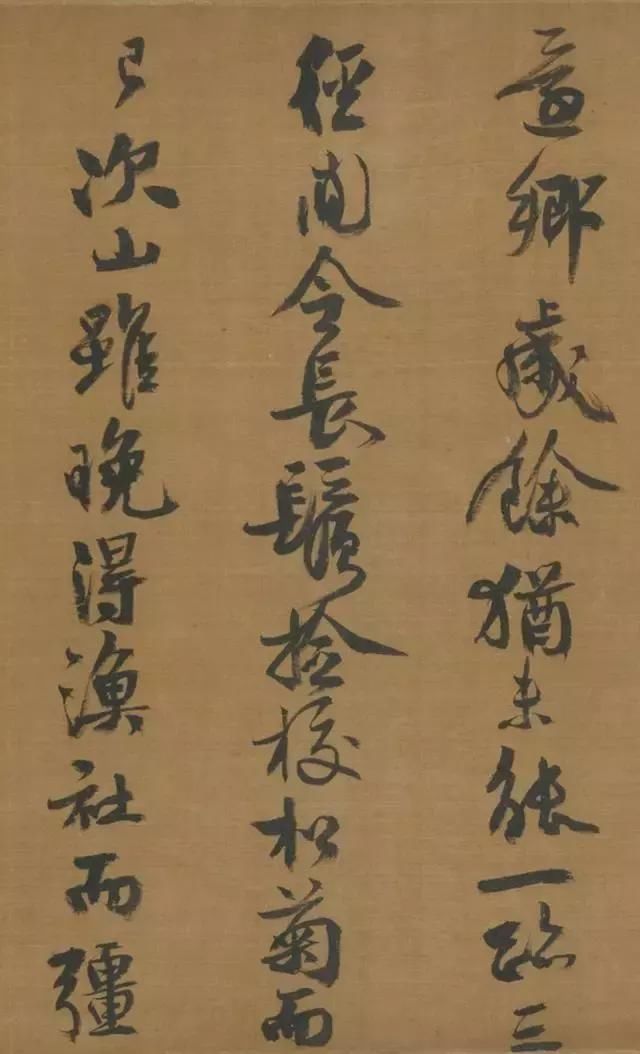 還鄉歲餘猶未能一跡三
徑間令長鬚撿校松菊而
已次山雖晚得漁社而彊